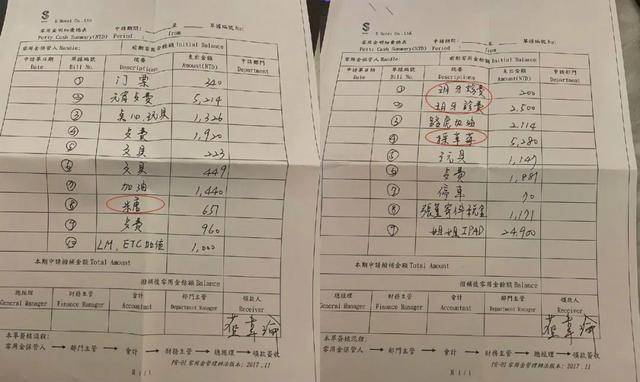 S Hotel Co.,Ltd
零用金明細彙總表 申請期間: 至 單據編號 No:
Petty Cash Summary(NTD) Period from
零用金保管人 Handle: 前期零用金餘額 Initial Balance
申請單日期 單據編號 摘要 支出金額 申請部門
Date Bill No. Descriptions Amount(NTD) Department
① 门票
② 點費 5,214
③ 點心,玩具 1,326
④ 点费 1,920
⑤ 文具 223
⑥ 文具 449
⑦ 加油 1,440
⑧ 651
⑨ 点费 960
⑩ LM, ETC加值 1,000
本期申請撥補金額 Total Amount
撥補後零用金餘額 Balance
總經理 財務主管 會計 部門主管 領款人
General Manager Finance Manager Accountant Department Manager Receiver
本單簽核流程:
零用金保管人 → 部門主管 → 會計 → 財務主管 → 總經理 → 領款簽收
PR-01 零用金管理辦法版本: 2017.11
頁 1/1
S Hotel Co.,Ltd
零用金明細彙總表 申請期間: 至 單據編號 No:
Petty Cash Summary(NTD) Period from
零用金保管人 Handle: 前期零用金餘額 Initial Balance
申請單日期 單據編號 摘要 支出金額 申請部門
Date Bill No. Descriptions Amount(NTD) Department
① 玥牙診費 200
② 玥牙診費 2,500
③ 路虎加油 2,114
④ 採草莓 5,280
⑤ 玩具 1,149
⑥ 点费 1,881
⑦ 停車 90
⑧ 1,171
⑨ 姐姐IPAD 24,900
本期申請撥補金額 Total Amount
撥補後零用金餘額 Balance
總經理 財務主管 會計 部門主管 領款人
General Manager Finance Manager Accountant Department Manager Receiver
本單簽核流程:
零用金保管人 → 部門主管 → 會計 → 財務主管 → 總經理 → 領款簽收
PR-01 零用金管理辦法版本: 2017.11
頁 1/1